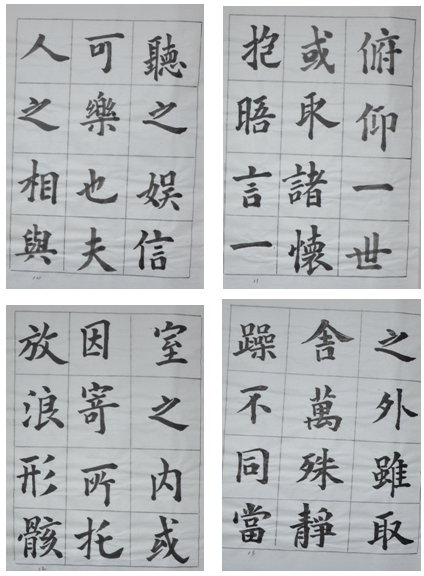 聽之娛信
可樂也夫
人之相與
俯仰一世
或取諸懷
抱晤言一
室之内或
因寄所托
放浪形骸
之外雖取
舍萬殊靜
躁不同當